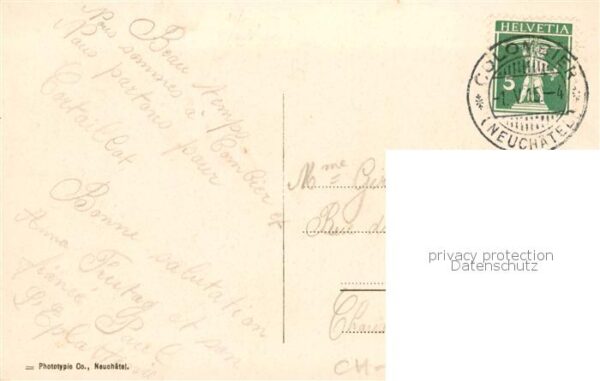 Beau temps
Nous sommes à Combier et
Nous partons pour
Cortaillod,
Bonne salutation
Anna Freitag et son
fiancé Paul
HELVETIA
5
COLOMBIER
(NEUCHÂTEL)
Mme
Rue
privacy protection
Datenschutz
CH-
Phototypie Co., Neuchâtel.